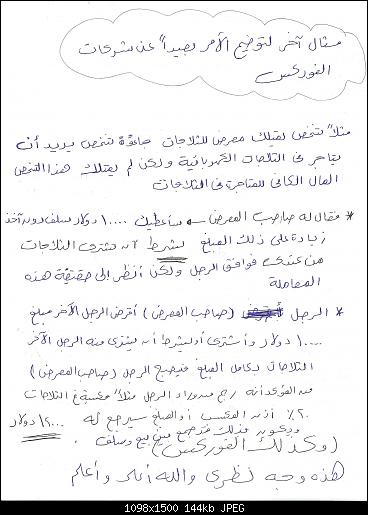 مثال آخر لتوضيح الأمر بعيداً عن شركات
الفوركس
مثلاً شخص يمتلك معرض للثلاجات جاءه شخص يريد أن
يتاجر فى الثلاجات الكهربائية ولكن لم يمتلك هذا الشخص
المال الكافى للمتاجرة فى الثلاجات
* فقال له صاحب المعرض سأعطيك ١٠٠٠٠ دولار سلف بدون أخذ
زيادة على ذلك المبلغ بشرط أن تشترى الثلاجات
من عندى فوافق الرجل ولكن أنظر إلى حقيقة هذه
المعاملة
* الرجل (صاحب المعرض) أقرض الرجل الآخر مبلغ
١٠٠٠٠ دولار و أشترى أو بشرط أن يشترى منه الرجل الآخر
الثلاجات بكامل المبلغ فيصبح الرجل (صاحب المعرض)
من المؤكد أنه ربح من وراء الرجل مثلاً مكسبه فى الثلاجات
٢٠٪ أذن المكسب أو المبلغ سيرجع له ١٢٠٠٠ دولار
ويكون بذلك قد جمع بين بيع وسلف
(وكذلك الفوركس)
هذه وجه نظرى والله أعلى وأعلم
1098x1500 144kb JPEG